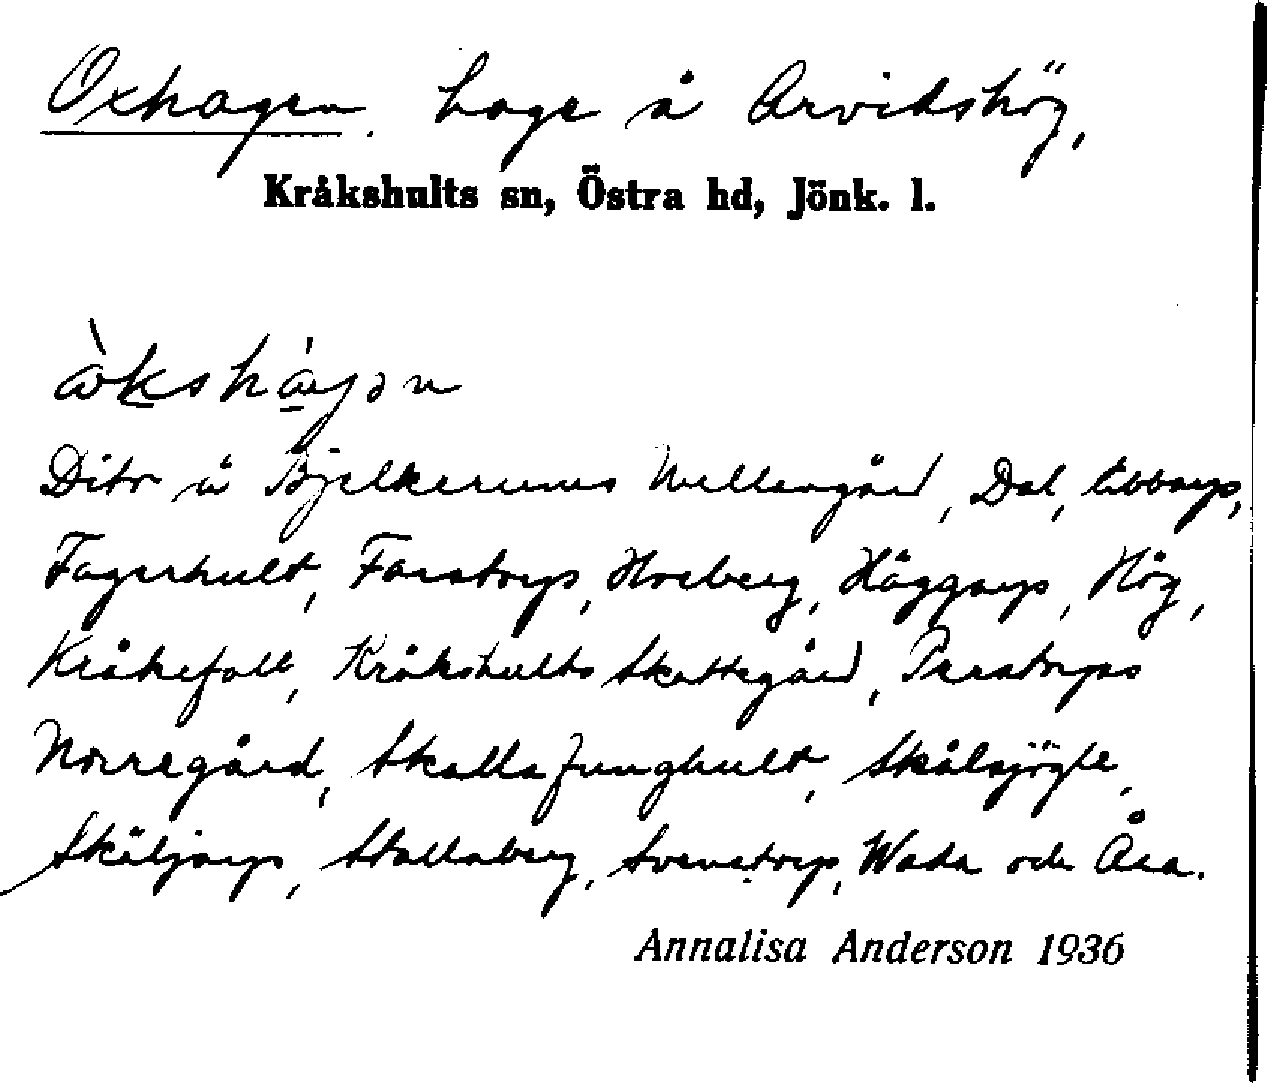 Oxhagen. hage å Arvidshög,
Kråkshults sn, Östra hd, Jönk. l.
Dito å Bjelkerums Mellangård, Dal, Ebbarp,
Fagerhult, Farstorp, Horberg, Häggarp, Hög,
Kråkefall, Kråkshults Skattegård, Perstorps
Norregård, Skalla Junghult,
Skäljarp, Stallaberg, Svenstorp, Wada och Åsa.
Annalisa Anderson 1936